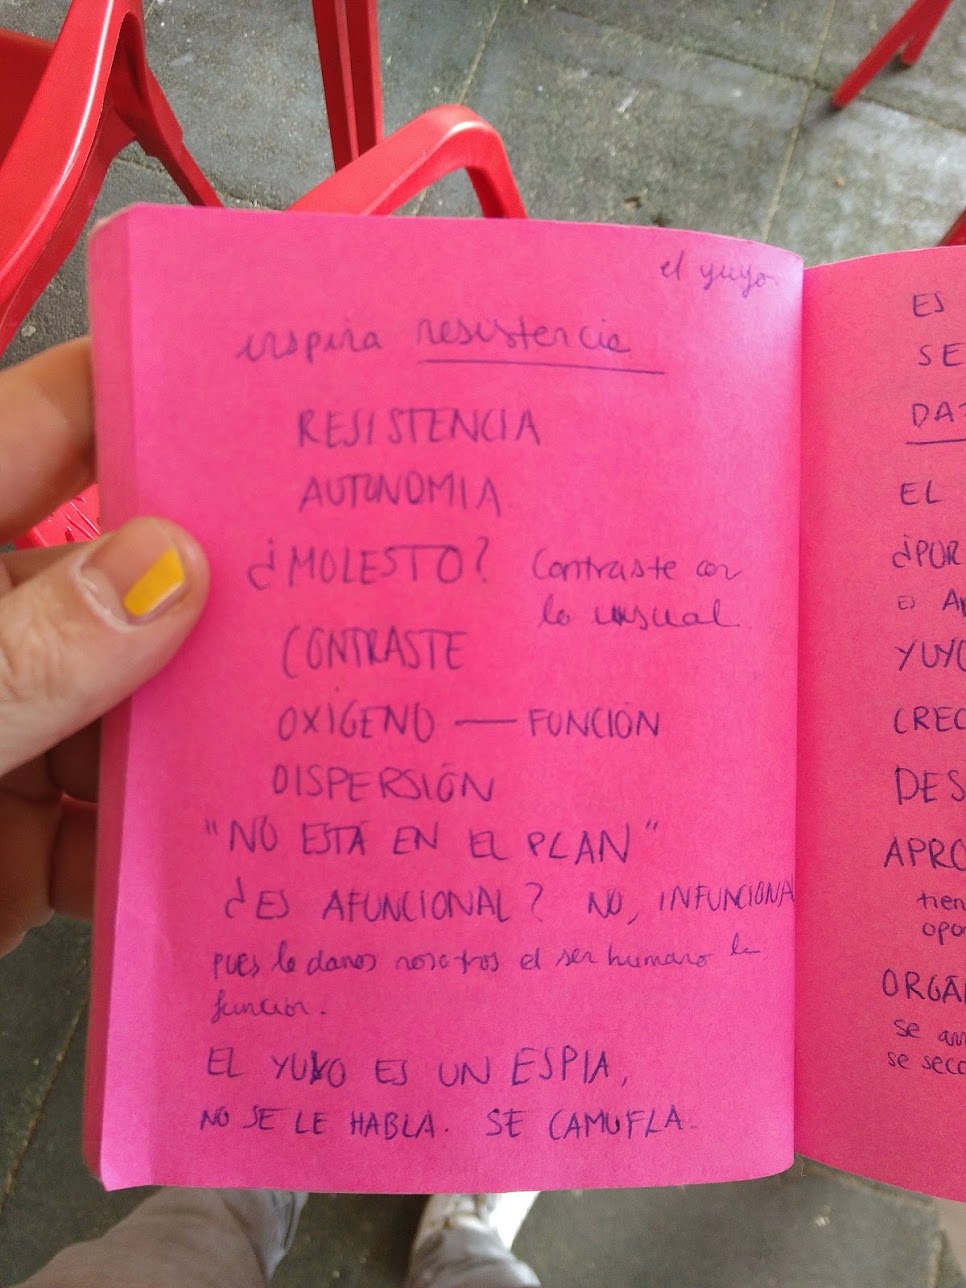 el yuyo
inspira resistencia
RESISTENCIA
AUTONOMIA
¿MOLESTO? Contraste con
lo usual
CONTRASTE
OXÍGENO — FUNCIÓN
DISPERSIÓN
"NO ESTÁ EN EL PLAN"
¿ES AFUNCIONAL? NO, INFUNCIONA
pues le damos nosotros el ser humano la
función.
EL YUYO ES UN ESPIA,
NO SE LE HABLA. SE CAMUFLA.
ES
SE
DAT
EL
¿POR
YUYO
CREC
DES
APRO
tien
opor
ORGÁ
se am
se seca